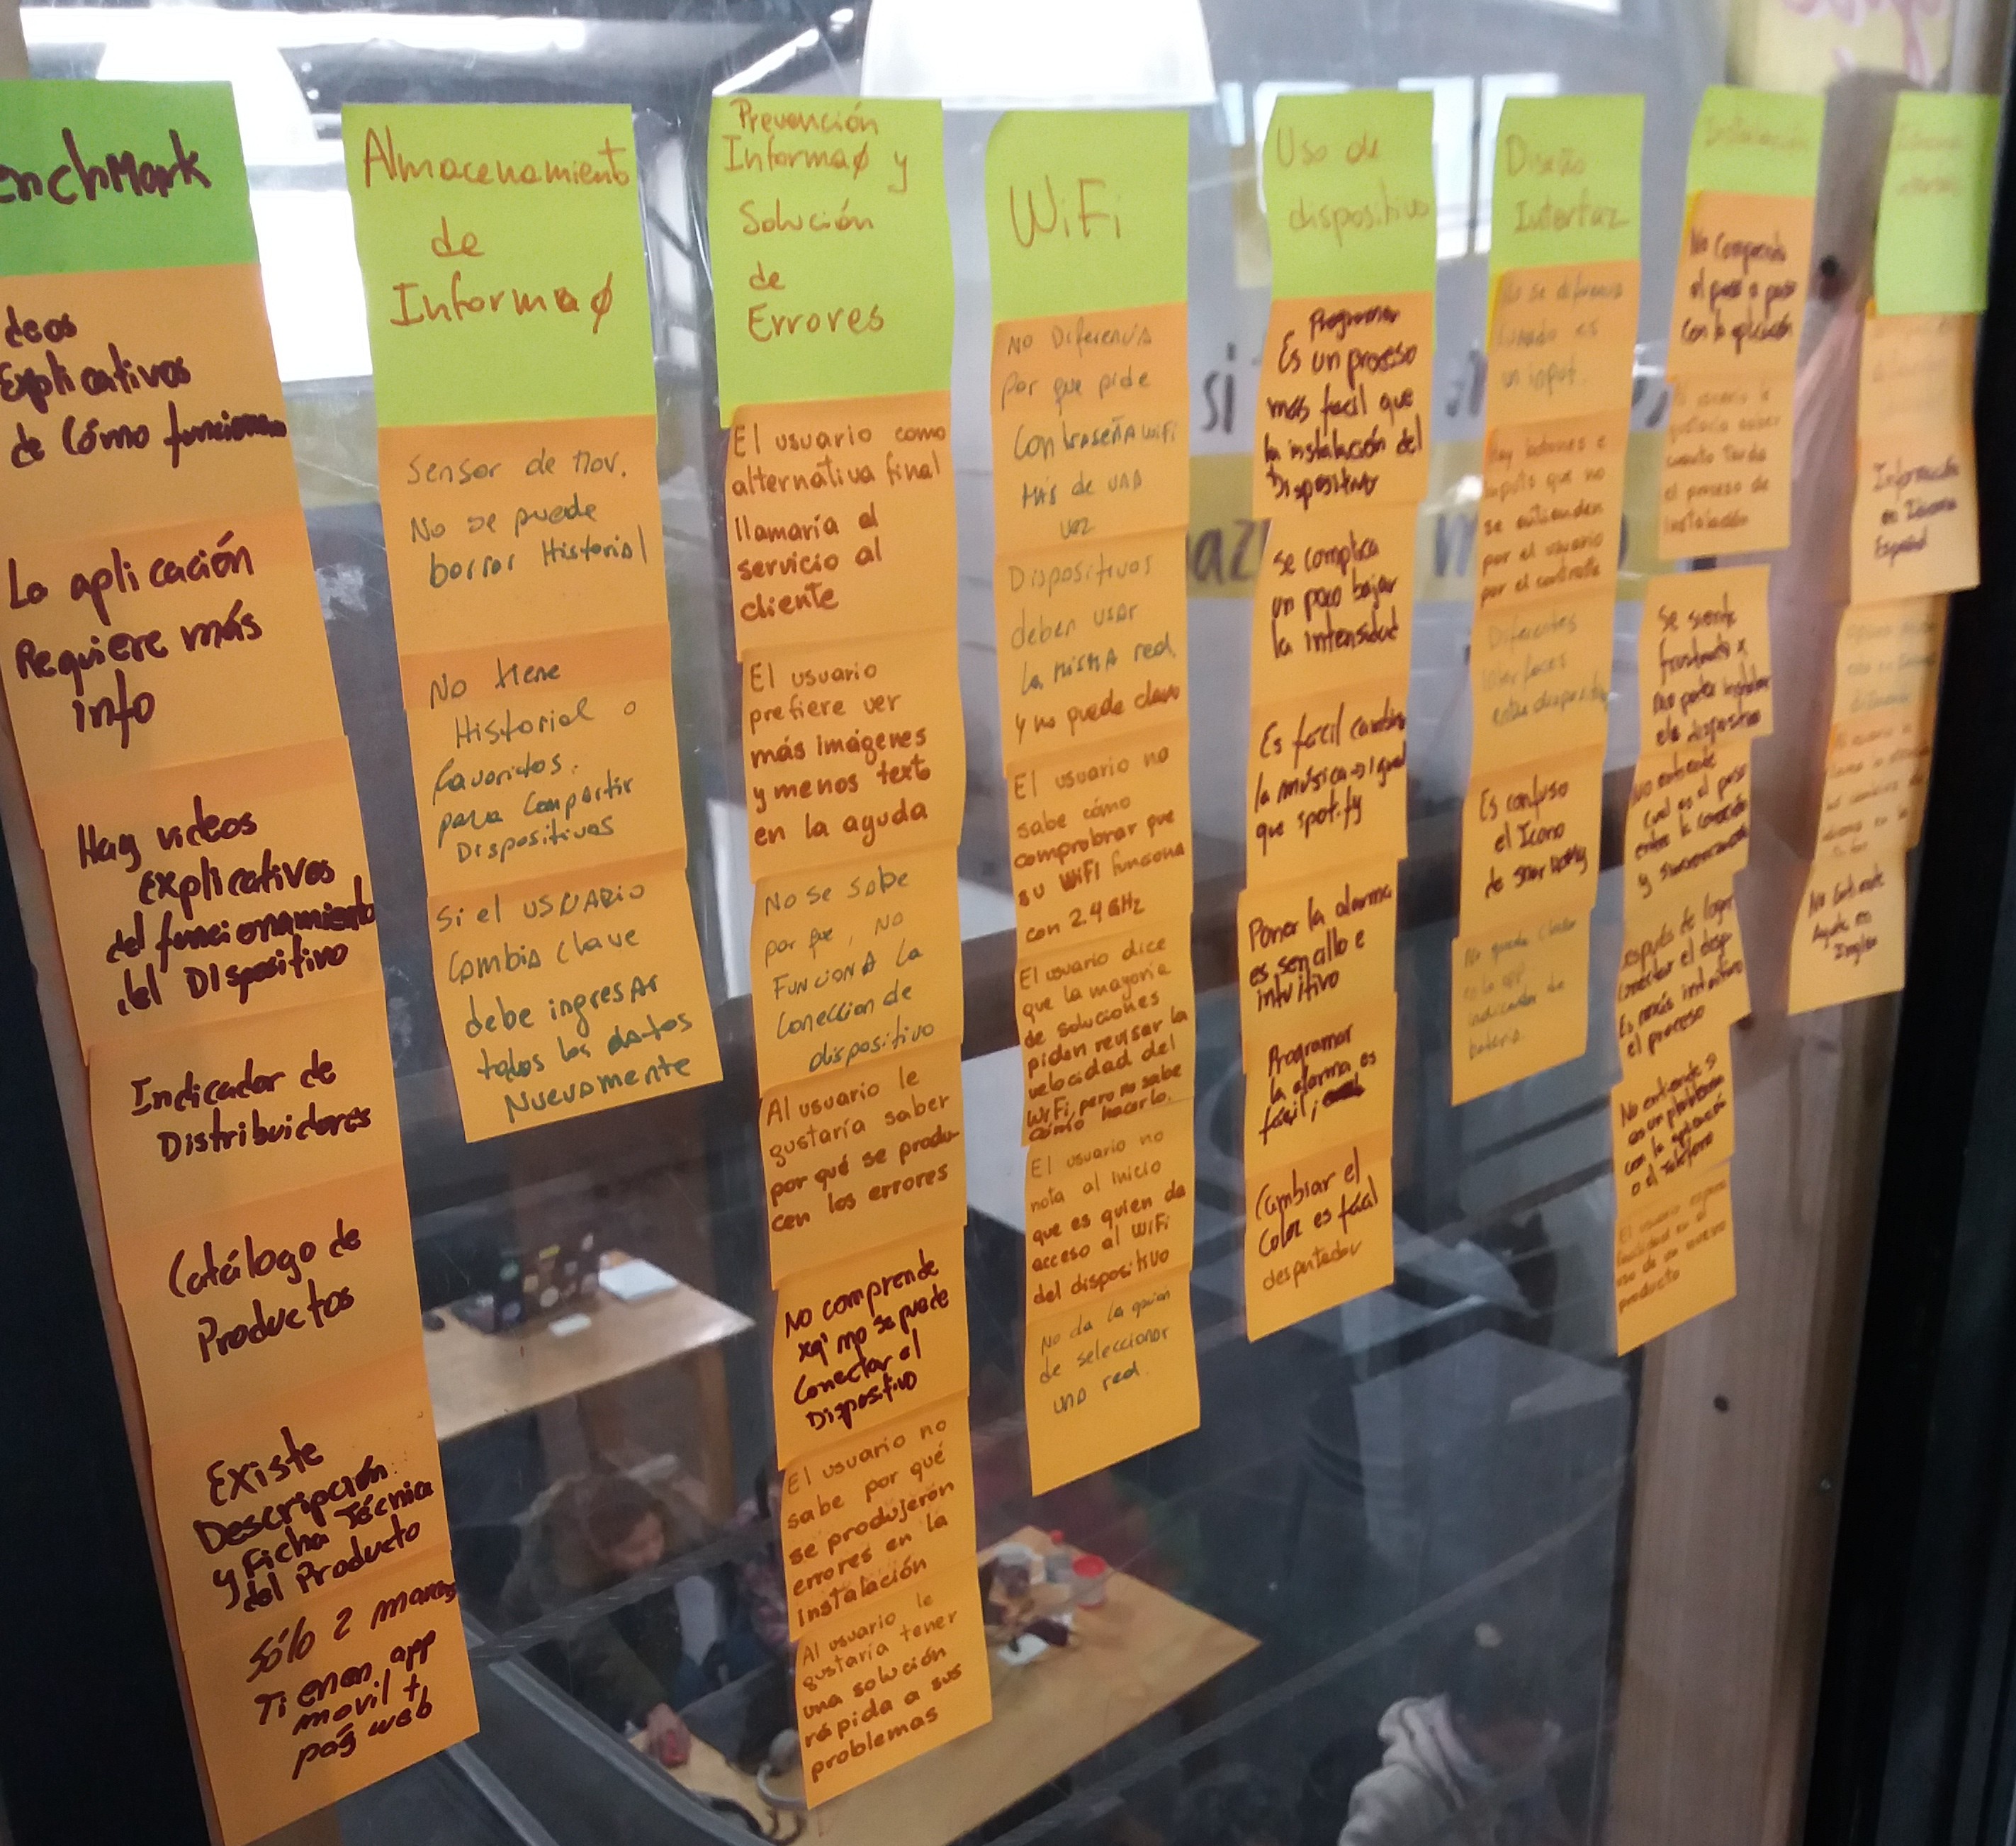 enchMark
deos
Explicativos
de Cómo funcionan
La aplicación
Requiere más
info
Hay videos
explicativos
del funcionamiento
del Dispositivo
Indicador de
Distribuidores
Catálogo de
Productos
Existe
Descripción
y Ficha Técnica
del Producto
Sólo 2 marcas
Tienen app
movil +
pág web
Almacenamiento
de
Informaø
Sensor de Mov.
No se puede
borrar Historial
No tiene
Historial o
favoritos.
para Compartir
Dispositivos
Si el usuario
Cambia clave
debe ingresar
todos los datos
Nuevamente
Prevención
Informaø y
Solución
de
Errores
El usuario como
alternativa final
llamaría al
servicio al
cliente
El usuario
prefiere ver
más imágenes
y menos texto
en la ayuda
No se sabe
por que, no
Funciona la
Coneccion de
dispositivo
Al usuario le
gustaría saber
por qué se produ-
cen los errores
No comprende
xq' no se puede
Conectar el
Dispositivo
El usuario no
sabe por qué
se produjeron
errores en la
instalación
Al usuario le
gustaría tener
una solución
rápida a sus
problemas
WiFi
No Diferencia
por que pide
Contraseña wifi
más de una
vez
Dispositivos
deben usar
la misma red.
y no puede
El usuario no
sabe cómo
comprobrar que
su WiFi funciona
con 2.4 GHz
El usuario dice
que la mayoría
de soluciones
piden revisar la
velocidad del
WiFi, pero no sabe
cómo hacerlo.
El usuario no
nota al inicio
que es quien da
acceso al WiFi
del dispositivo
No da la
de seleccionar
una red.
Uso de
dispositivo
Programar
Es un proceso
más facil que
la instalación del
Dispositivo
se complica
un poco bajar
la intensidad
Es fácil cambiar
la música → igual
que spotify
Poner la alarma
es sencillo e
intuitivo
Programar
la alarma es
fácil,
Cambiar el
Color es fácil
despertador
Diseño
Interfaz
No se diferencia
cuando es
un input.
Hay botones e
inputs que no
se entienden
por el usuario
por el contraste
Diferentes
Interfaces
entre
Es confuso
el Icono
de
No queda claro
en la app
indicador de
batería.
Instalación
No comprende
el paso a paso
con la aplicación
Al usuario le
gustaría saber
cuanto tarda
el proceso de
instalación
Se siente
frustrado x
no poder instalar
el dispositivo
No entiende
cual es el paso
entre la conexión
y sincronización
Después de lograr
conectar el disp.
Es más intuitivo
el proceso
No entiende si
es un problema
con la aplicación
o el teléfono
El usuario espera
facilidad en el
uso de un nuevo
producto
Información
en Idioma
Español
No Entiende
Ayuda en
Ingles